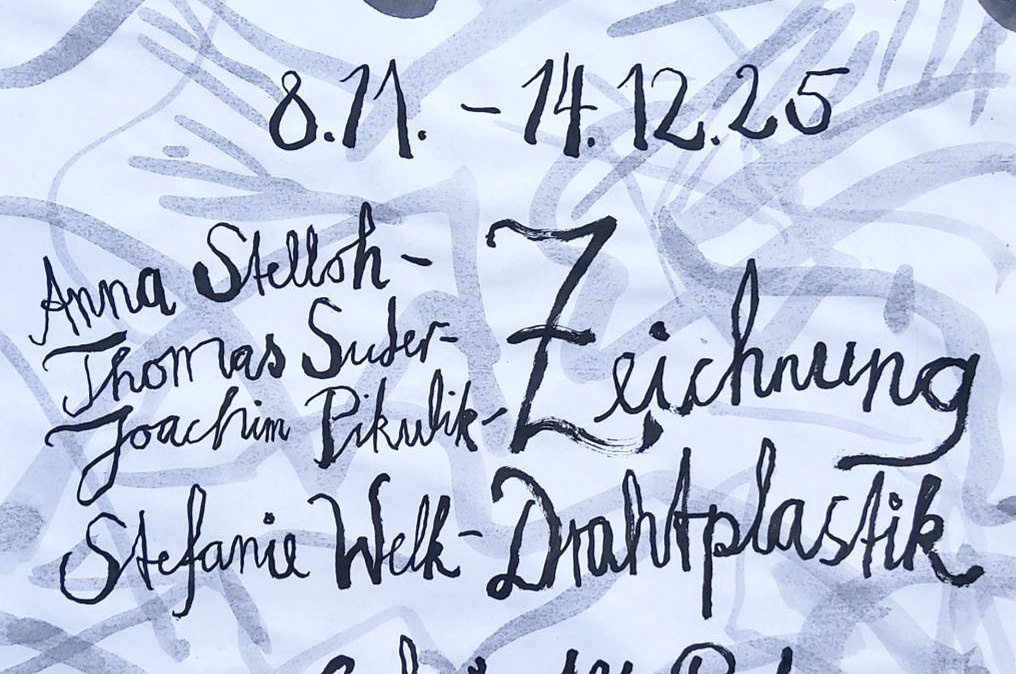 8.11. – 14.12.25
Anna Stelloh –
Thomas Suter –
Joachim Pikulik – Zeichnung
Stefanie Welk – Drahtplastik